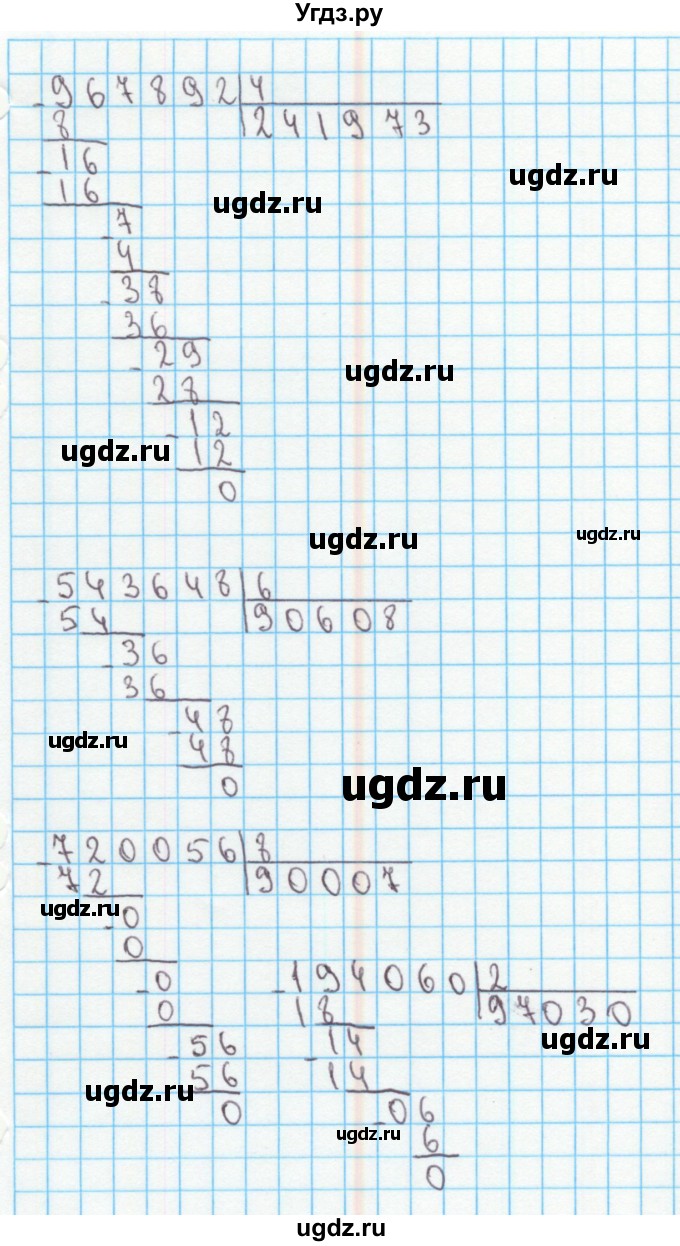 Угдз.ру
- 967892 | 4
8 | 241973
- 16
16
- 7
4
- 38
36
- 29
28
- 12
12
0
ugdz.ru
ugdz.ru
ugdz.ru
ugdz.ru
ugdz.ru
ugdz.ru
- 543648 | 6
54 | 90608
- 36
36
- 48
48
0
ugdz.ru
ugdz.ru
- 720056 | 8
72 | 90007
- 0
0
- 0
0
- 56
56
0
ugdz.ru
- 194060 | 2
18 | 97030
- 14
14
- 06
6
0
ugdz.ru
ugdz.ru
ugdz.ru
ugdz.ru